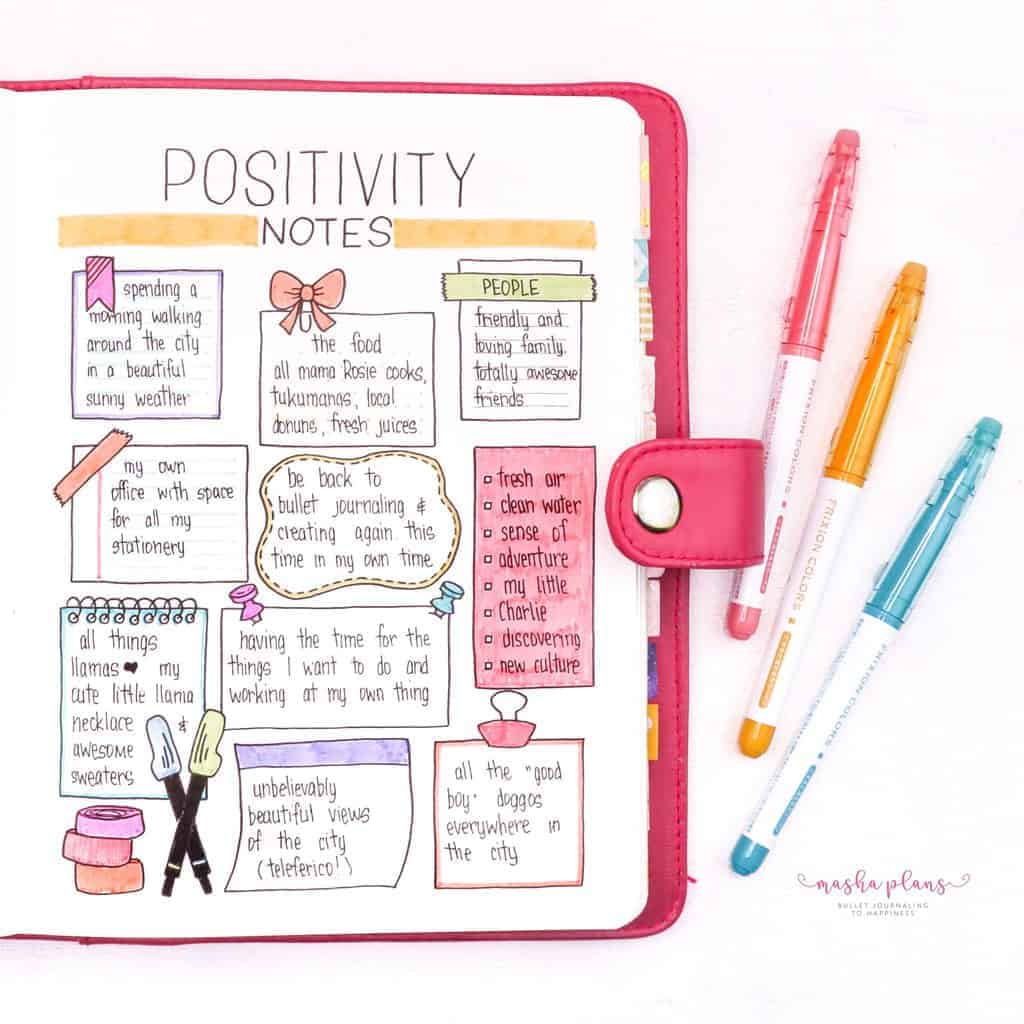 POSITIVITY
NOTES
spending a
morning walking
around the city
in a beautiful
sunny weather
the food
all mama Rosie cooks,
tukumanas, local
donuns, fresh juices
PEOPLE
friendly and
loving family.
totally awesome
friends
my own
office with space
for all my
stationery
be back to
bullet journaling &
creating again this
time in my own time
fresh air
clean water
sense of
adventure
my little
Charlie
discovering
new culture
all things
llamas ❤ my
cute little llama
necklace &
awesome
sweaters
having the time for the
things I want to do and
working at my own thing
unbelievably
beautiful views
of the city
(teleferico!)
all the "good
boy" doggos
everywhere in
the city
FRIXION COLORS
FRIXION COLORS
FRIXION COLORS
masha plans
BULLET JOURNALING
TO HAPPINESS